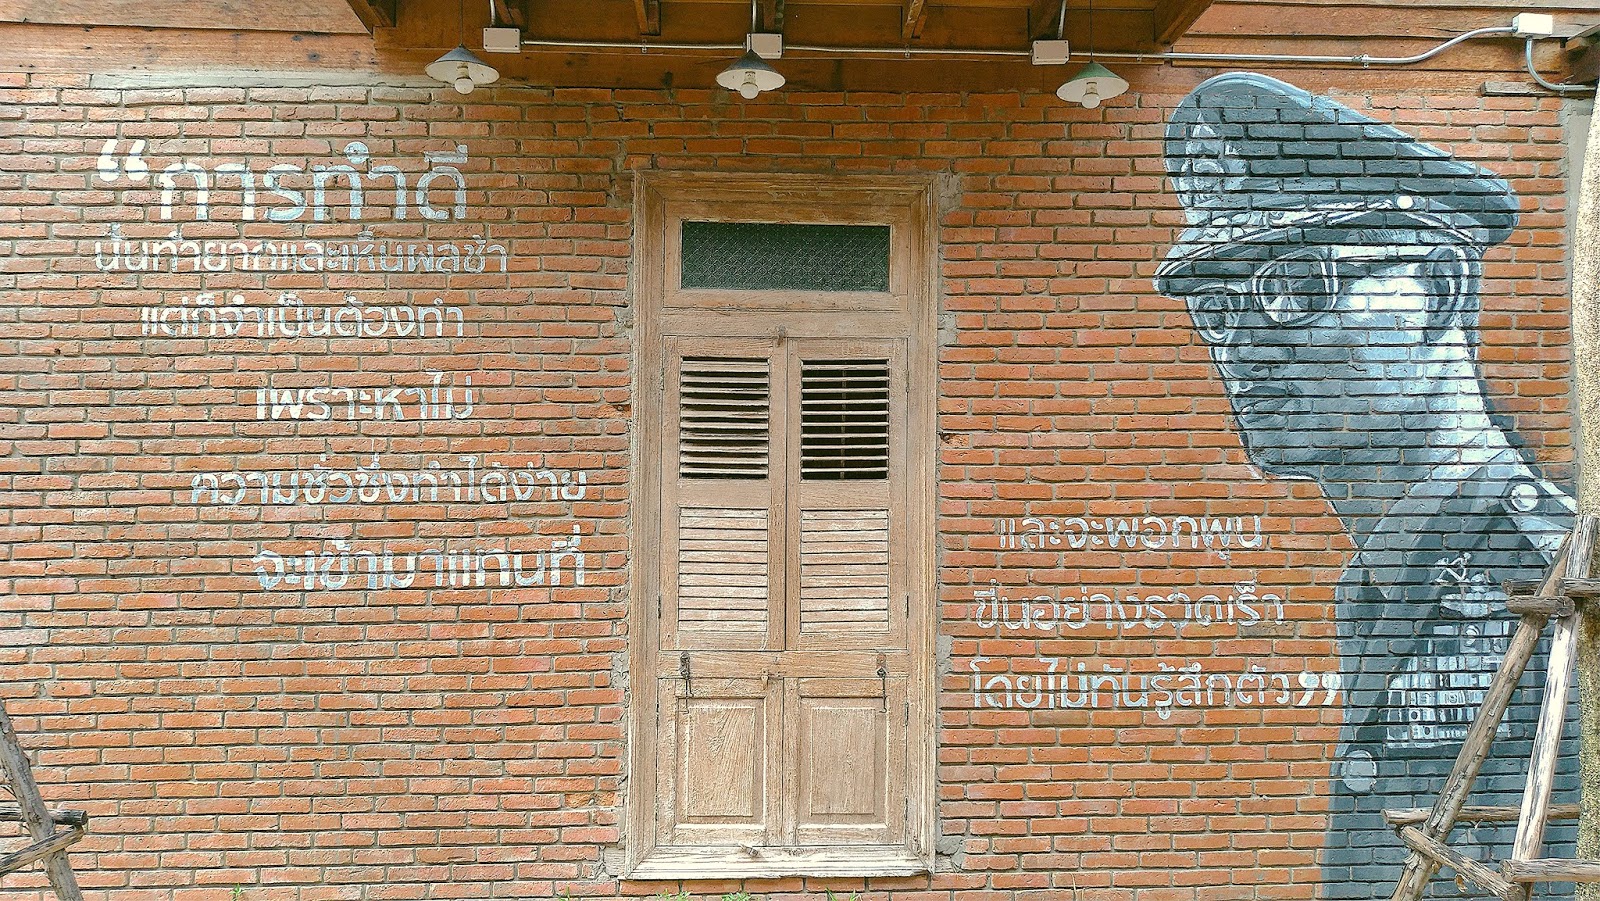 “การทำดี
นั้นทำยากและเห็นผลช้า
แต่ก็จำเป็นต้องทำ
เพราะหาไม่
ความชั่วซึ่งทำได้ง่าย
จะเข้ามาแทนที่
และจะพอกพูน
ขึ้นอย่างรวดเร็ว
โดยไม่ทันรู้สึกตัว”